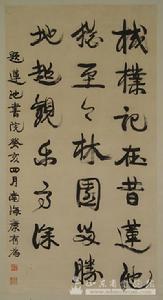 棫樸記在昔蓮池
猶至今林園最勝
地觀樂高深
題蓮池書院癸亥四月南海康有為